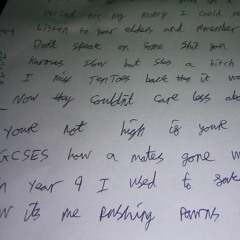 for my I could
Listen to your elders and remember
Don't speak on some shit you
Karmas slow but shes a bitch
I miss TenToes back then it
Now they couldn't care less abou
Youre not high is youre
GCSES how a mates gone
in year 9 I used to
its me Pushing Pawns